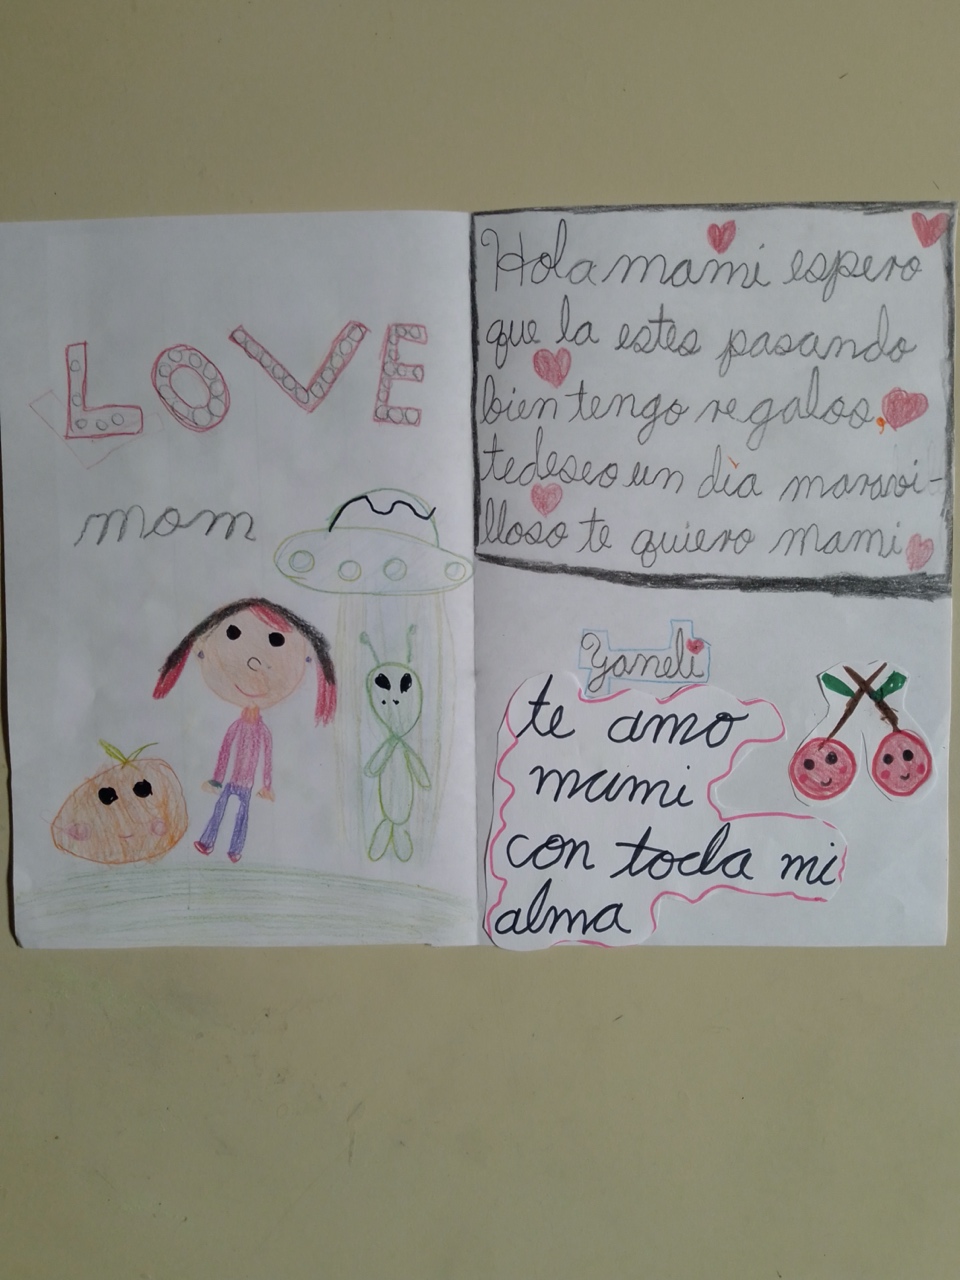 LOVE
mom
Hola mami espero
que la estes pasando
bien tengo regalos,
te deseo un dìa maravi-
lloso te quiero mami
Yaneli
te amo
mami
con toda mi
alma